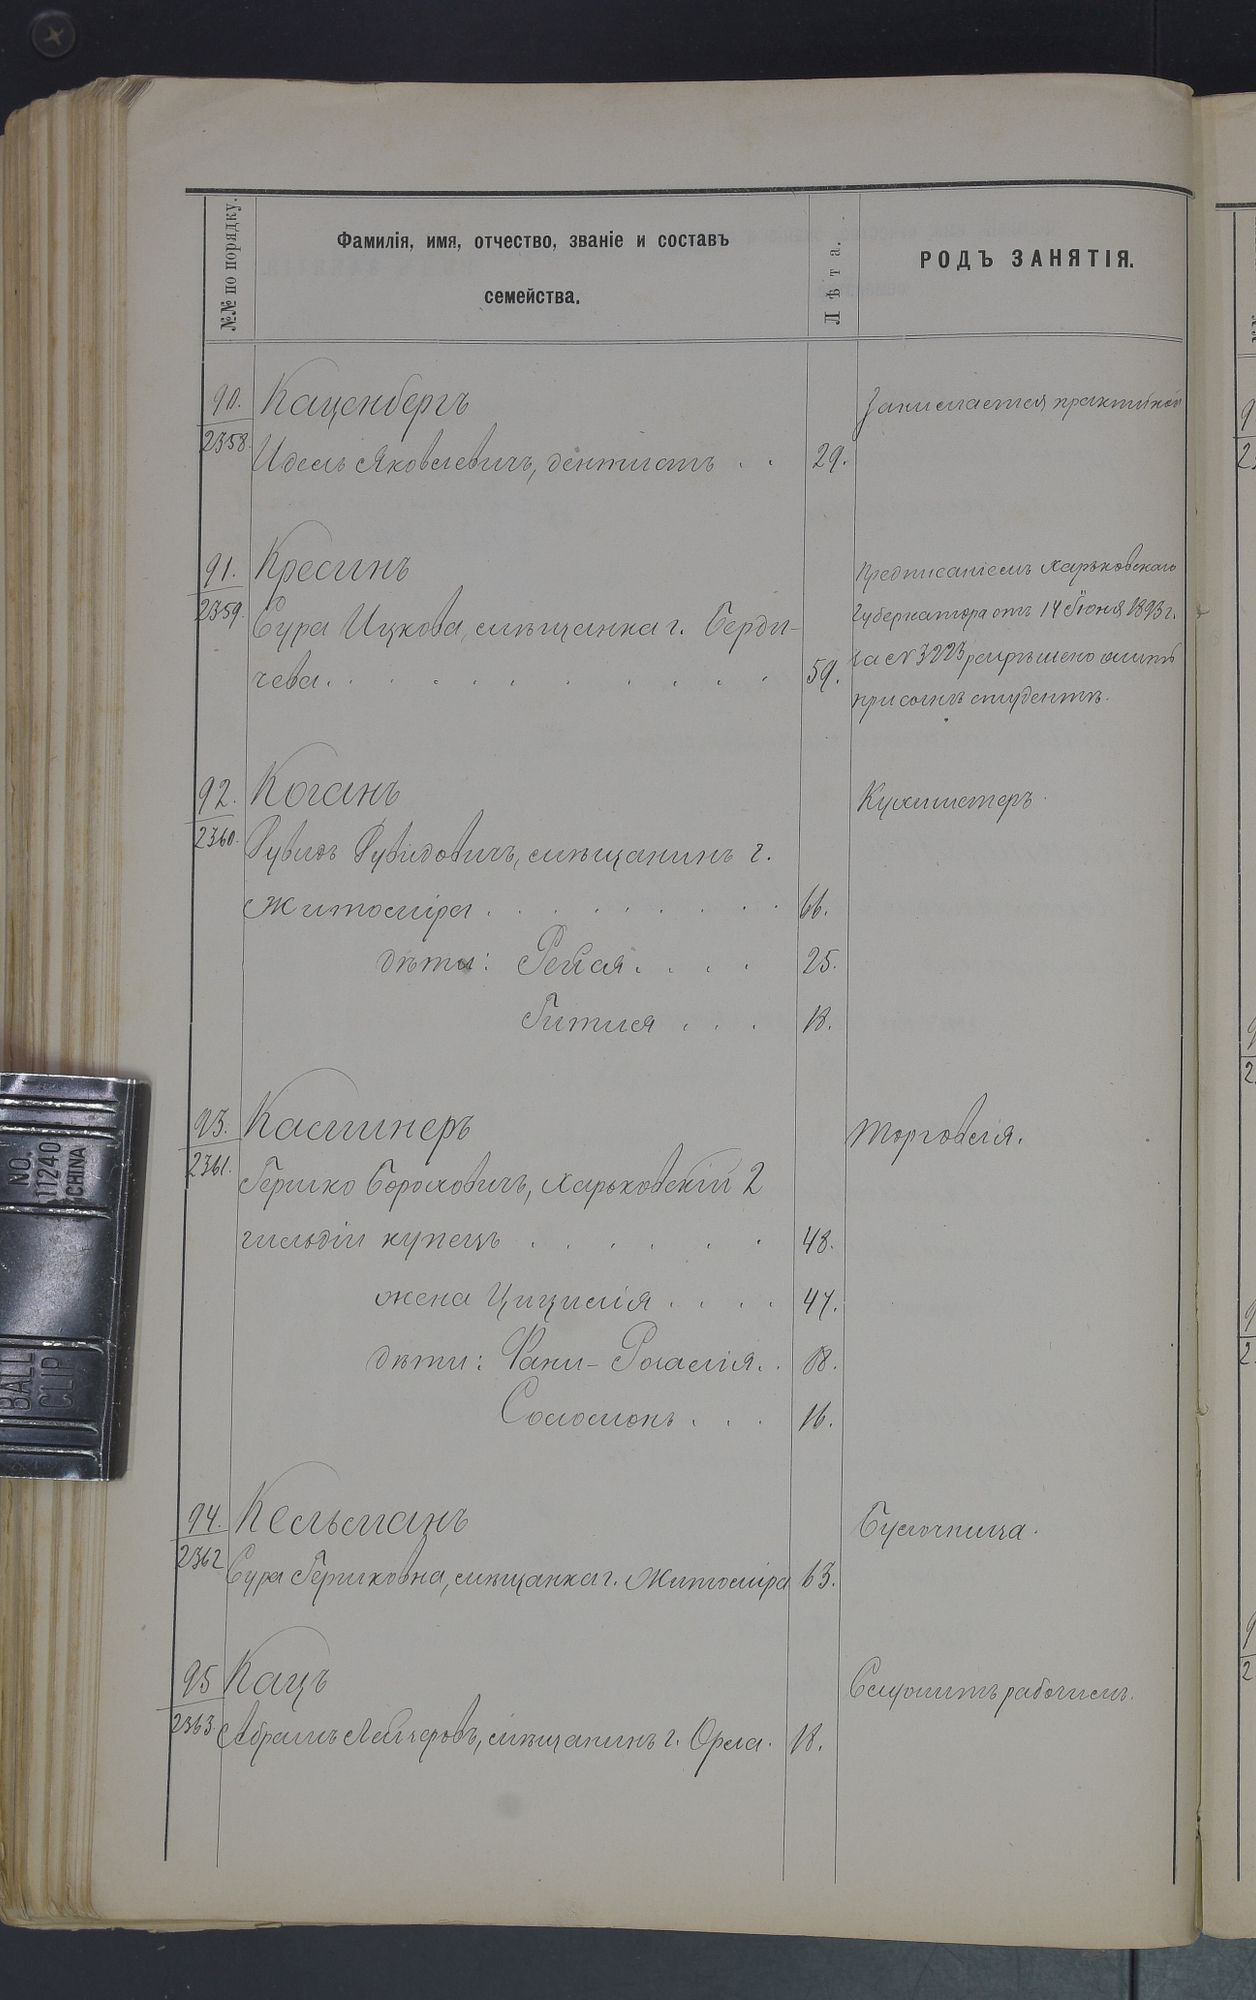 №№ по порядку.
Фамилія, имя, отчество, званіе и составъ
семейства.
Лѣта.
РОДЪ ЗАНЯТІЯ.
90.
2358.
Каценбергъ
Идель Яковлевичъ, дентистъ . .
29.
Занимается практикой
91.
2359.
Кресинъ
Сура Ицкова, мѣщанка г. Берди-
чева . . . . . . . . . .
59.
Предписаніемъ Харьковскаго
Губернатора отъ 14 Іюня 1893 г.
за № 3223 разрѣшено жить
при сынѣ студентѣ.
92.
2360.
Коганъ
Рувидъ Рувидовичъ, мѣщанинъ г.
Житоміра . . . . . . . .
66.
дѣти: Рейзя . . . .
25.
Гитля . . .
18.
Кухмистеръ.
93.
2361.
Каминеръ
Гершко Бороховичъ, Харьковскій 2
гильдіи купецъ . . . . . .
48.
жена Цицилія . . . .
47.
дѣти: Фани-Розалія . .
18.
Соломонъ . . .
16.
Торговля.
94.
2362
Кельманъ
Сура Гершковна, мѣщанка г. Житоміра
63.
Булочница.
95
2363.
Кацъ
Абрамъ Лейзеровъ, мѣщанинъ г. Орла.
18.
Служитъ рабочимъ.
NO.
11240
CHINA
BALL
CLIP